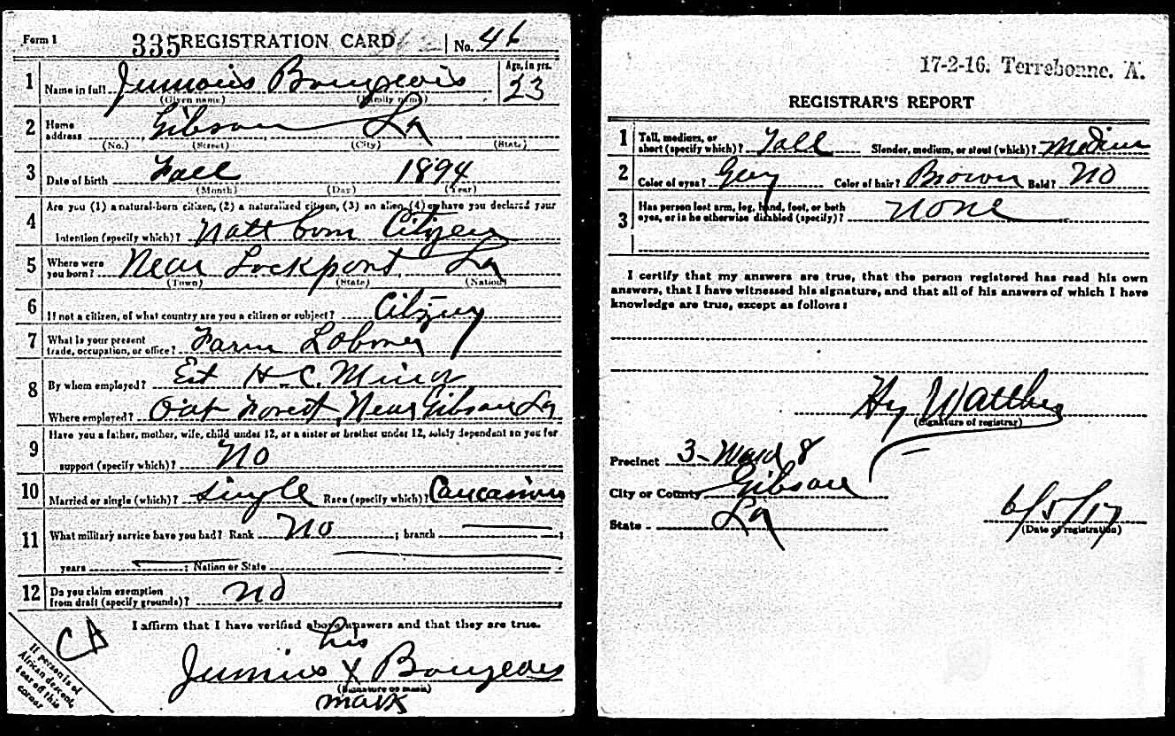 Form 1 335 REGISTRATION CARD No. 46
1 Name in full Junious Bourgeois Age, in yrs. 23
(Given name) (Family name)
2 Home address Gibson La
(No.) (Street) (City) (State)
3 Date of birth Fall 1894
(Month) (Day) (Year)
4 Are you (1) a natural-born citizen, (2) a naturalized citizen, (3) an alien, (4) or have you declared your
intention (specify which)? Natl born Citizen
5 Where were you born? Near Lockport La
(Town) (State) (Nation)
6 If not a citizen, of what country are you a citizen or subject? Citizen
7 What is your present trade, occupation, or office? Farm Laborer
8 By whom employed? Est H.C. Minor
Where employed? Near Gibson La
9 Have you a father, mother, wife, child under 12, or a sister or brother under 12, solely dependent on you for
support (specify which)? No
10 Married or single (which)? Single Race (specify which)? Caucasian
11 What military service have you had? Rank No ; branch ;
years ; Nation or State
12 Do you claim exemption from draft (specify grounds)? No
I affirm that I have verified above answers and that they are true.
his
Junius X Bourgeois
(Signature or mark)
mark
If person is of
African descent,
tear off this
corner
17-2-16. Terrebonne. A.
REGISTRAR'S REPORT
1 Tall, medium, or short (specify which)? Tall Slender, medium, or stout (which)? Medium
2 Color of eyes? Gray Color of hair? Brown Bald? No
3 Has person lost arm, leg, hand, foot, or both
eyes, or is he otherwise disabled (specify)? None
I certify that my answers are true, that the person registered has read his own
answers, that I have witnessed his signature, and that all of his answers of which I have
knowledge are true, except as follows:
(Signature of registrar)
Precinct 3-Ward 8
City or County Gibson
State - La
6/5/17
(Date of registration)